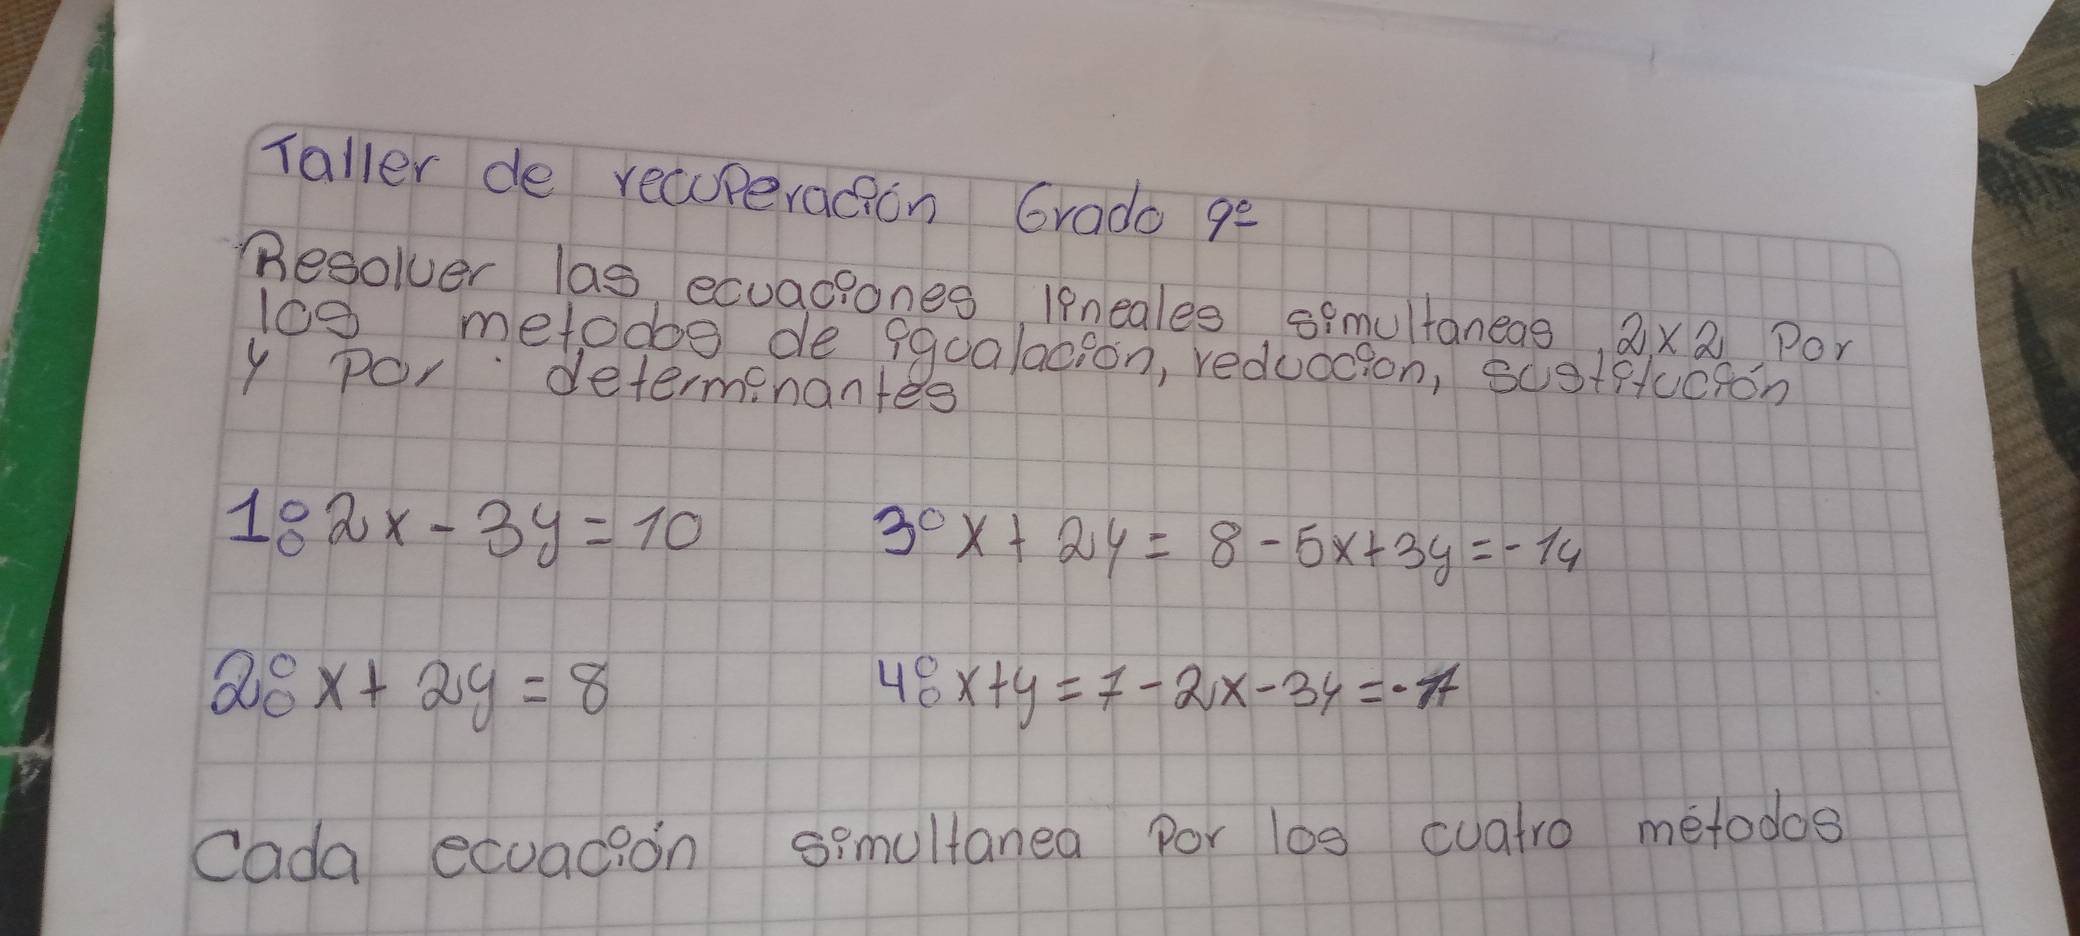 Taller de recuperación Grado 9º
Resolver las ecuaciones lineales simultaneas 2x2 Por
los metodos de igualación, reduccion, sustitución
y por determinantes
1: 2x - 3y = 10
3º x + 2y = 8 - 5x + 3y = -14
2: x + 2y = 8
4: x + y = 7 - 2x - 3y =
Cada ecuación simultanea Por los cuatro métodos